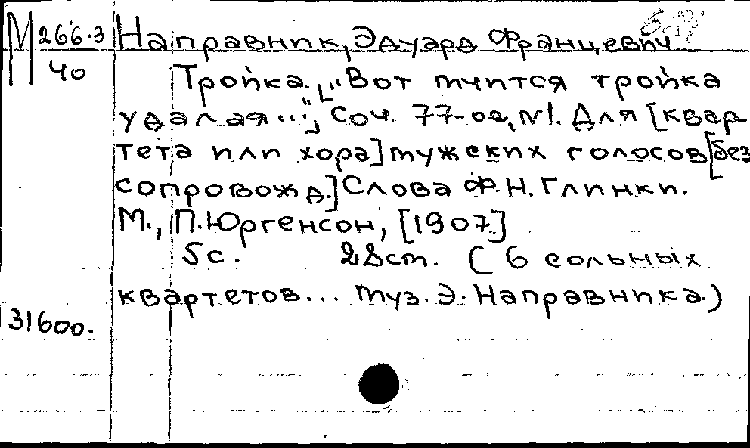 М 266.3 Направник, Эдуард Францевич
40
Тройка. „Вот мчится тройка
удалая...", Соч. 77-ое, №1. Для [квар-
тета или хора] мужских голосов [без
сопровожд.] Слова Ф.Н. Глинки.
М., П. Юргенсон, [1907]
5с. 28 cm. (6 сольных
квартетов... муз. Э. Направника.)
31600.